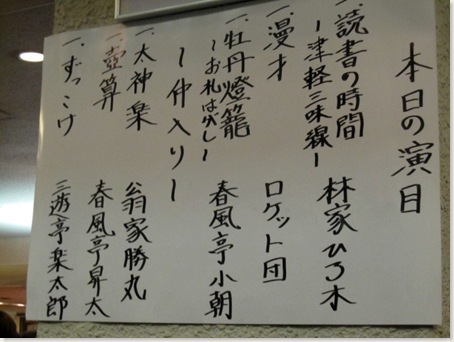 本日の演目
一、読書の時間
ー津軽三味線ー 林家ひろ木
一、漫才 ロケット団
一、牡丹燈籠
〜お札はがし〜 春風亭小朝
〜仲入り〜
一、太神楽 翁家勝丸
一、壺算 春風亭昇太
一、ずっこけ 三遊亭楽太郎